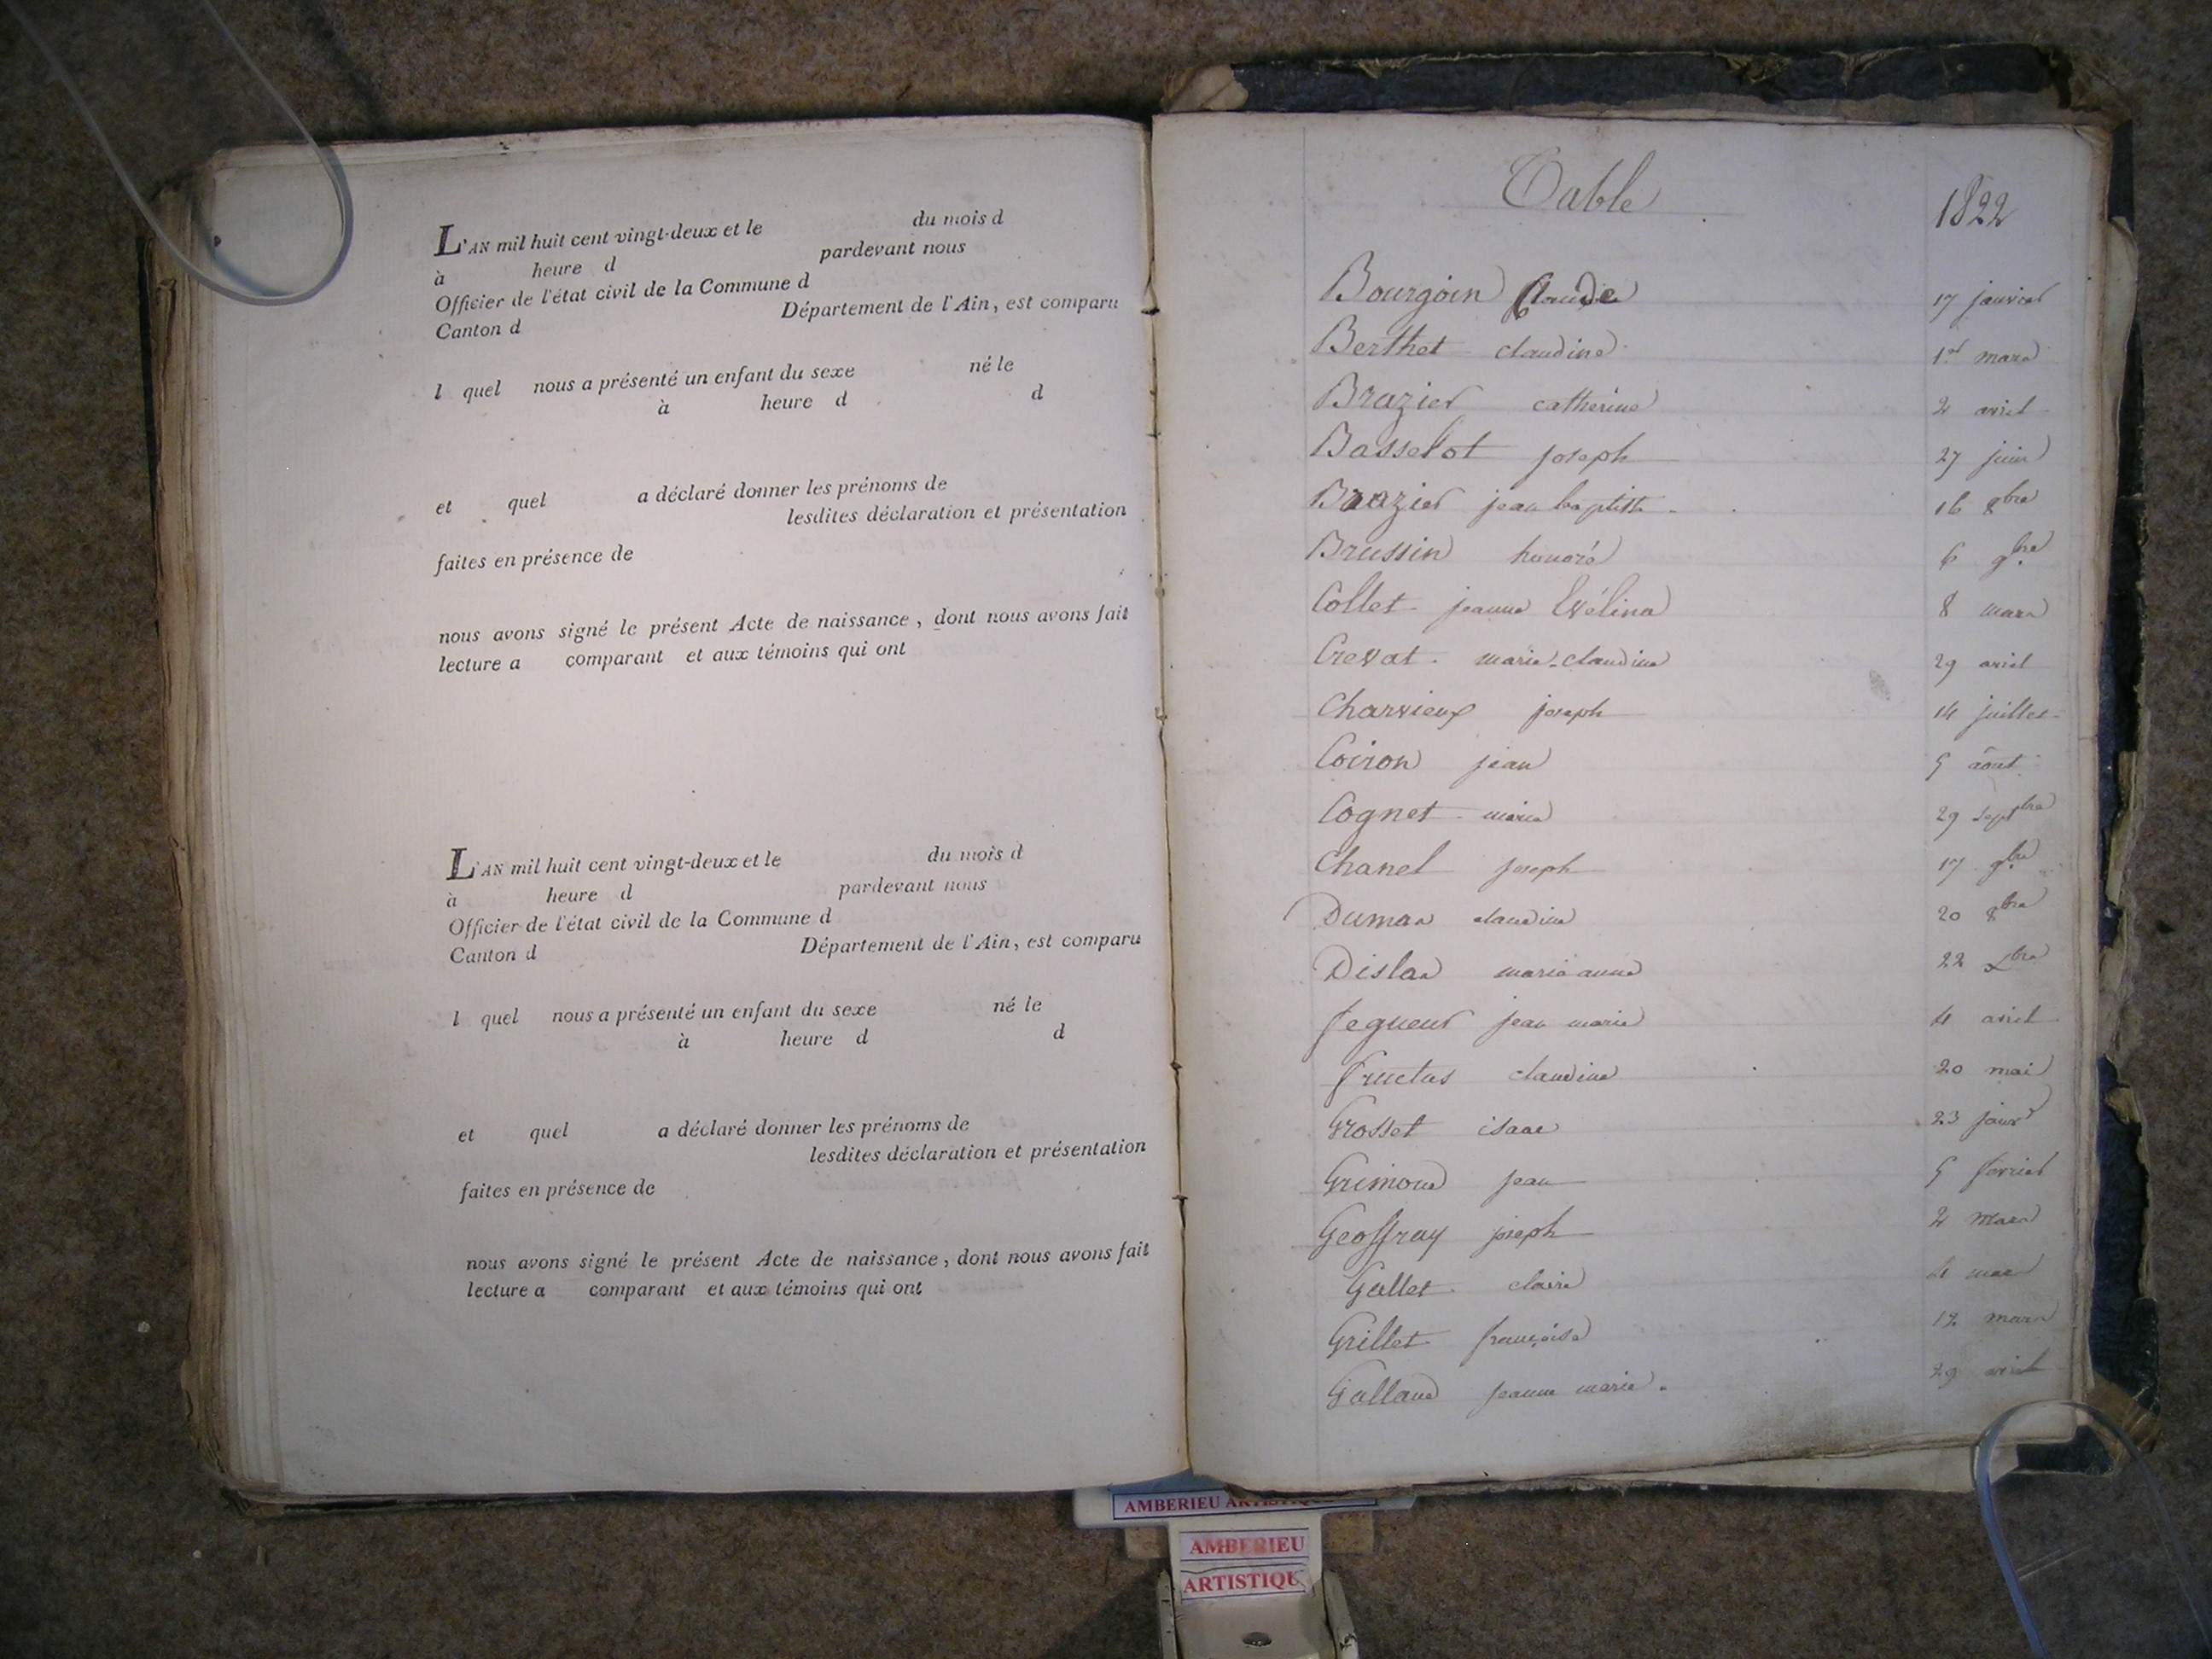 L'AN mil huit cent vingt-deux et le du mois d
à heure d pardevant nous
Officier de l'état civil de la Commune d
Canton d Département de l'Ain, est comparu
l quel nous a présenté un enfant du sexe né le
à heure d d
et quel a déclaré donner les prénoms de
lesdites déclaration et présentation
faites en présence de
nous avons signé le présent Acte de naissance, dont nous avons fait
lecture a comparant et aux témoins qui ont
L'AN mil huit cent vingt-deux et le du mois d
à heure d pardevant nous
Officier de l'état civil de la Commune d
Canton d Département de l'Ain, est comparu
l quel nous a présenté un enfant du sexe né le
à heure d d
et quel a déclaré donner les prénoms de
lesdites déclaration et présentation
faites en présence de
nous avons signé le présent Acte de naissance, dont nous avons fait
lecture a comparant et aux témoins qui ont
Table 1822
Bourgoin Claude 17 janvier
Berthet claudine 1er mars
Brazier catherine 2 avril
Basselot joseph 27 juin
Brazier jean baptiste 16 8bre
Brussin honoré 6 9bre
Collet jeanne Evélina 8 mars
Crevat marie-claudine 29 avril
Charvieux joseph 14 juillet
Coiron jean 5 août
Cognet marie 29 septbre
Chanel joseph 17 9bre
Dumas claudine 20 8bre
Dislas marie anne 22 Xbre
fegueur jean marie 4 avril
fructus claudine 20 mai
Grosset isaac 23 janvr
Grimond jean 5 février
Geoffray joseph 2 mars
Gallet claire 4 mars
Grillet françoise 12 mars
Galland jeanne marie 29 avril
AMBERIEU
AMBERIEU
ARTISTIQU